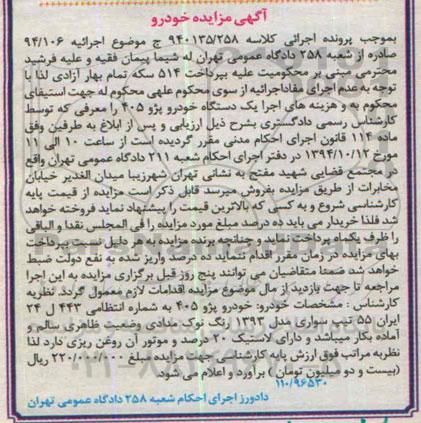 آگهی مزایده خودرو
بموجب پرونده اجرائی کلاسه ۹۴۰۱۳۵/۲۵۸ ج موضوع اجرائیه ۹۴/۱۰۶
صادره از شعبه ۲۵۸ دادگاه عمومی تهران له شیما پیمان فقیه و علیه فرشید
محترمی مبنی بر محکومیت علیه بپرداخت ۵۱۴ سکه تمام بهار آزادی لذا با
توجه به عدم اجرای مفاداجرائیه از سوی محکوم علیهی محکوم له جهت استیفای
محکوم به و هزینه های اجرا یک دستگاه خودرو پژو ۴۰۵ را معرفی که توسط
کارشناس رسمی دادگستری بشرح ذیل ارزیابی و پس از ابلاغ به طرفین وفق
ماده ۱۱۴ قانون اجرای احکام مدنی مقرر گردیده است از ساعت ۱۰ الی ۱۱
مورخ ۱۳۹۴/۱۰/۱۲ در دفتر اجرای احکام شعبه ۲۱۱ دادگاه عمومی تهران واقع
در مجتمع قضایی شهید مفتح به نشانی تهران شهرزیبا میدان الغدیر خیابان
مخابرات از طریق مزایده بفروش میرسد قابل ذکر است مزایده از قیمت پایه
کارشناسی شروع و به کسی که بالاترین قیمت را پیشنهاد نماید فروخته خواهد
شد فلذا خریدار می باید ده درصد مبلغ مورد مزایده را فی المجلس نقدا و الباقی
را ظرف یکماه پرداخت نماید و چنانچه برنده مزایده به هر دلیل نسبت به پرداخت
بهای مزایده در زمان مقرر اقدام ننماید ده درصد واریز شده به نفع دولت ضبط
خواهد شد ضمنا متقاضیان می توانند پنج روز قبل برگزاری مزایده به این اجرا
مراجعه تا جهت بازدید از مال موضوع مزایده اقدامات لازم معمول گردد. نظریه
کارشناس : مشخصات خودرو: خودرو پژو ۴۰۵ به شماره انتظامی ۴۴۳ ل ۲۴
ایران ۵۵ تیپ سواری مدل ۱۳۹۳ رنگ نوک مدادی وضعیت ظاهری سالم و
آماده بکار میباشد و دارای لاستیک ۲۰ درصد و موتور آن روغن ریزی دارد لذا
نظریه مراتب فوق ارزش پایه کارشناسی جهت مزایده مبلغ ۲۲۰/۰۰۰/۰۰۰ ریال
(بیست و دو میلیون تومان ) برآورد و اعلام می شود.
۱۱۰/۹۶۵۳۰
دادورز اجرای احکام شعبه ۲۵۸ دادگاه عمومی تهران